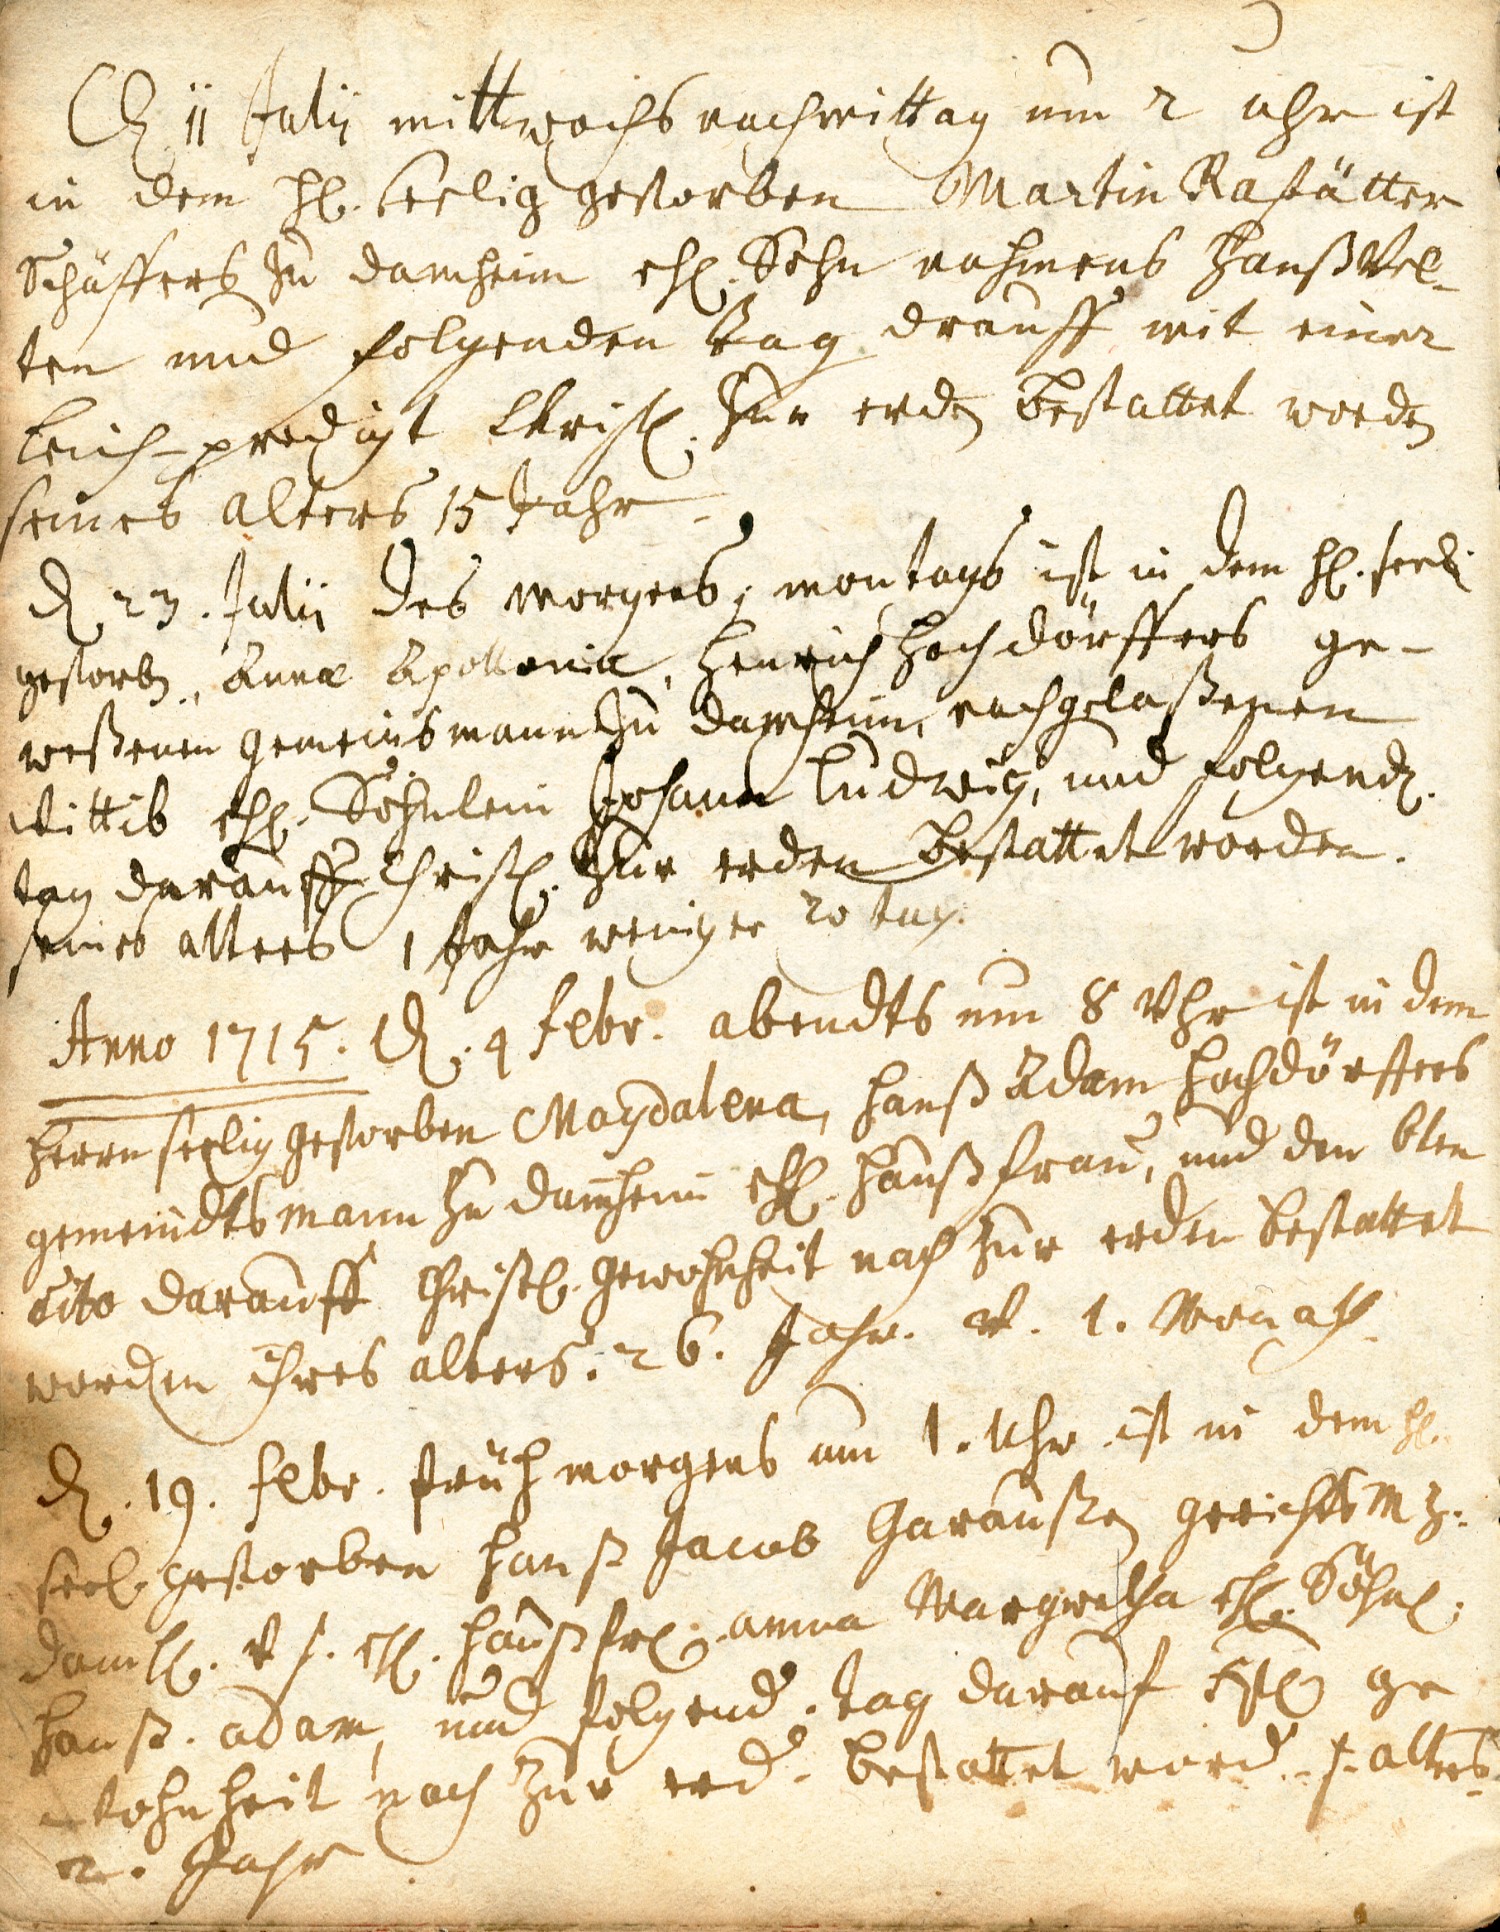 D. 11 Julij mittwochs nachmittag um 2 uhr ist
in dem H. Seelig gestorben Martin Rastätter
Schäffers zu damheim ehl. Sohn nahmens Hanß Vel-
ten und folgenden tag drauff mit einer
leich-predigt Christl. zur erden bestattet worden
seines alters 15 Jahr
D. 23. Julij des morgens, montags ist in dem H. seeli
gestorb. Anna Apollonia, Henrich Hochdörffers ge-
weßenen gemeinsmann zu damheim, nachgelaßenen
wittib ehl. Söhnlein Johann Ludwig, und folgend.
tag darauff Christl. zur erden bestattet worden.
seines alters 1 Jahr weniger 20 tag.
Anno 1715. D. 4 febr. abendts um 8 Uhr ist in dem
Herrn seelig gestorben Magdalena, Hanß Adam Hochdörffers
gemeindtsmann zu damheim ehl. haußfrau, und den 6ten
dito darauff Christl. gewohnheit nach zur erden bestattet
worden ihres alters. 26. Jahr. v. 1. Monath.
D. 19. febr. früh morgens um 1. Uhr ist in dem H.
seel. gestorben Hanß Jacob Garaußen gerichtsm z.
damh. v s. ehl. haußfr. anna Margretha ehl. Söhnl.
Hanß. adam, und folgend. tag darauf Christl. ge
wohnheit nach zur erd. bestattet word. s. alters
2. Jahr